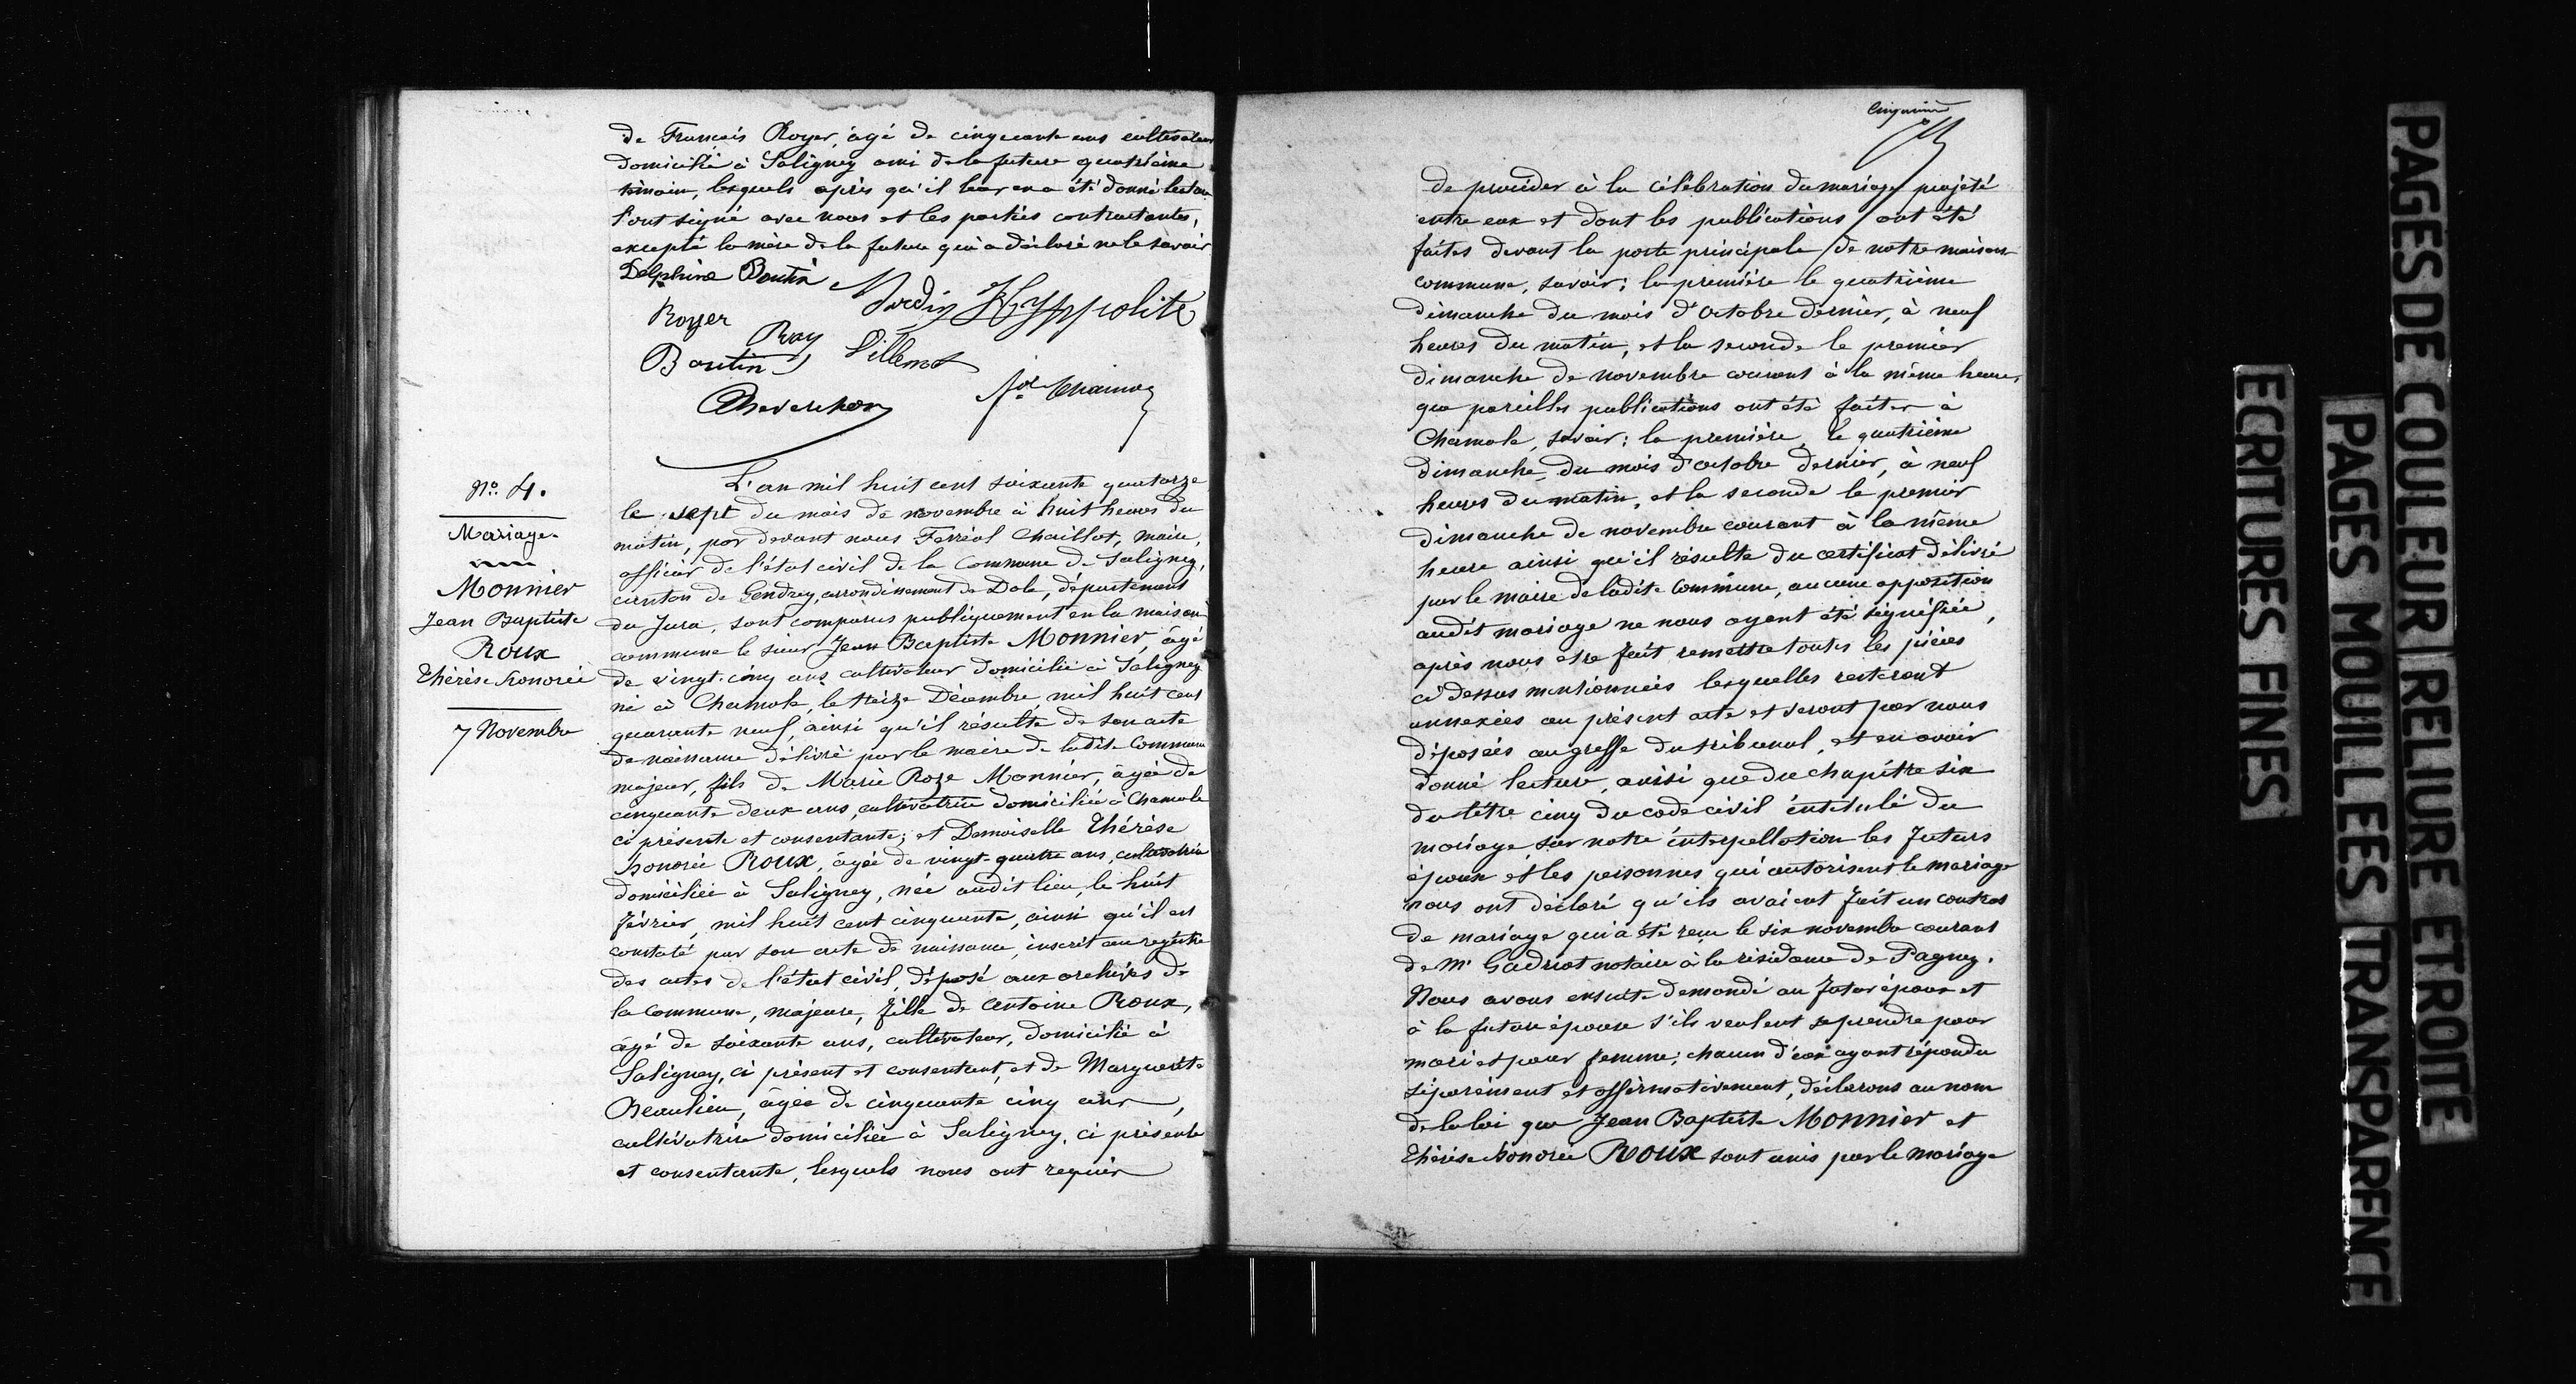 de François Royer, âgé de cinquante ans cultivateur
domicilié à Saligney ami de la future quatrième
témoin, lesquels après qu'il leur en a été donné lecture
l'ont signé avec nous et les parties contractantes,
excepté la mère de la future qui a déclaré ne le savoir
Delphine Boutin
Hyppolite
Royer
Ray
Boutin
N.º 4.
Mariage.
Monnier
Jean Baptiste
Roux
Thérèse honorée
7 Novembre
L'an mil huit cent soixante quatorze
le sept du mois de novembre à huit heures du
matin, par devant nous Ferréol Chaillot, maire,
officier de l'état civil de la Commune de Saligney,
canton de Gendrey, arrondissement de Dole, département
du Jura, sont comparus publiquement en la maison
commune le sieur Jean Baptiste Monnier, âgé
de vingt-cinq ans cultivateur domicilié à Saligney
né à Chamole, le treize Décembre mil huit cent
quarante neuf, ainsi qu'il résulte de son acte
de naissance délivré par le maire de ladite Commune
majeur, fils de Marie Roze Monnier, âgée de
cinquante deux ans, cultivatrice domiciliée à Chamole
ci présente et consentante; et Demoiselle Thérèse
honorée Roux, âgée de vingt-quatre ans, cultivatrice
domiciliée à Saligney, née audit lieu, le huit
février, mil huit cent cinquante, ainsi qu'il est
constaté par son acte de naissance, inscrit au registre
des actes de l'état civil, déposé aux archives de
la Commune, majeure, fille de Antoine Roux,
âgé de soixante ans, cultivateur, domicilié à
Saligney, ci présent et consentant, et de Marguerite
Beaulieu, âgée de cinquante cinq ans,
cultivatrice domiciliée à Saligney, ci présente
et consentante, lesquels nous ont requis
de procéder à la célébration du mariage projeté
entre eux et dont les publications ont été
faites devant la porte principale de notre maison
commune, savoir; la première le quatrième
dimanche du mois d'octobre dernier, à neuf
heures du matin, et la seconde le premier
dimanche de novembre courant à la même heure,
que pareilles publications ont été faites à
Chamole, savoir: la première, le quatrième
dimanche du mois d'octobre dernier, à neuf
heures du matin, et la seconde le premier
dimanche de novembre courant à la même
heure ainsi qu'il résulte du certificat délivré
par le maire de ladite Commune, aucune opposition
audit mariage ne nous ayant été signifiée,
après nous être fait remettre toutes les pièces
ci dessus mentionnées lesquelles resteront
annexées au présent acte et seront par nous
déposées au greffe du tribunal, et en avoir
donné lecture, ainsi que du chapitre six
du titre cinq du code civil intitulé du
mariage sur notre interpellation les futurs
époux et les personnes qui autorisent le mariage
nous ont déclaré qu'ils avaient fait un contrat
de mariage qui a été reçu le six novembre courant
de Mr Gadriot notaire à la résidence de Pagney.
Nous avons ensuite demandé au futur époux et
à la future épouse s'ils veulent se prendre pour
mari et pour femme; chacun d'eux ayant répondu
séparément et affirmativement, déclarons au nom
de la loi que Jean Baptiste Monnier et
Thérèse honorée Roux sont unis par le mariage
ECRITURES FINES
PAGES MOUILLEES TRANSPARENCE
PAGES DE COULEUR RELIURE ETROITE